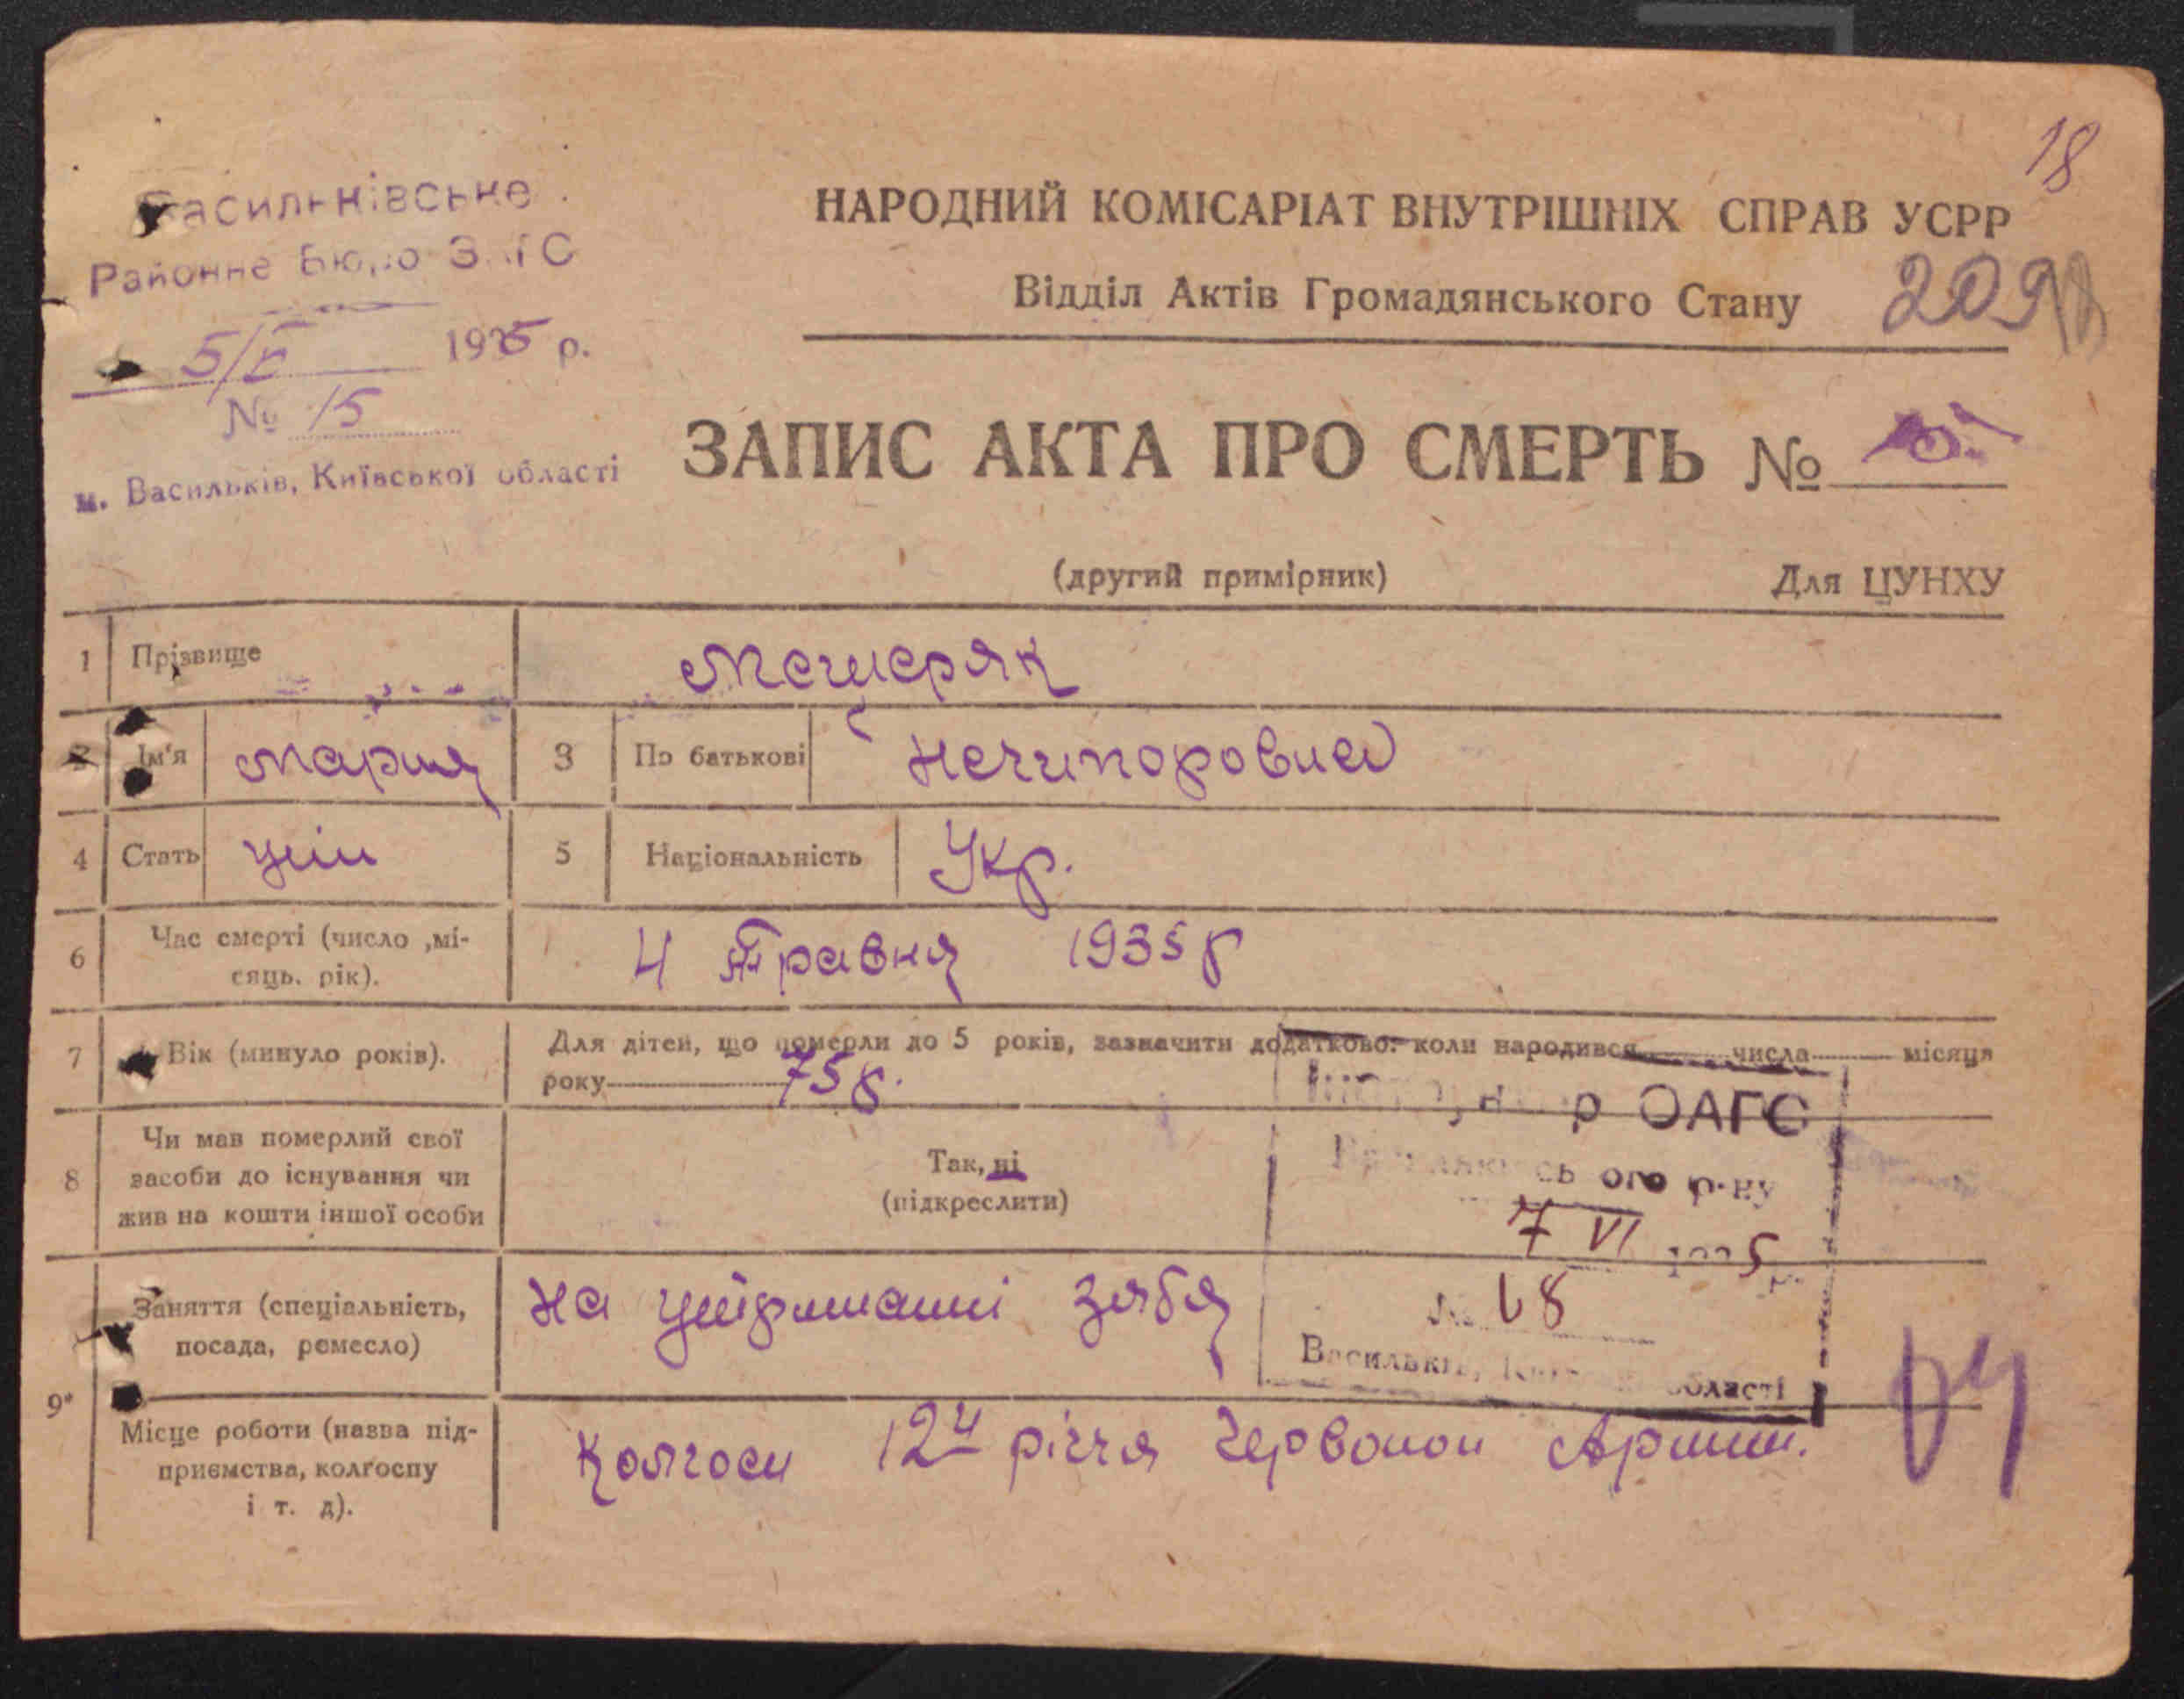 18
Васильківське
Районне Бюро ЗАГС
НАРОДНИЙ КОМІСАРІАТ ВНУТРІШНІХ СПРАВ УСРР
Відділ Актів Громадянського Стану
209
5/V 1935 р.
№ 15
м. Васильків, Київської області
ЗАПИС АКТА ПРО СМЕРТЬ №
(другий примірник) Для ЦУНХУ
1 Прізвище Мещеряк
2 Ім'я Мария 3 По батькові Нечипоровна
4 Стать жін 5 Національність Укр.
6 Час смерті (число ,мі-
сяць. рік). 4 Травня 1935 р
7 Вік (минуло років). Для дітей, що померли до 5 років, зазначити додатково: коли народився числа місяця
року 75 р.
8 Чи мав померлий свої
засоби до існування чи
жив на кошти іншої особи
Так, ні
(підкреслити)
ОАГС
ого р-ну
7 VI 1935 р.
№ 18
Васильків, Київської області
9 Заняття (спеціальність,
посада, ремесло) На утриманні зятя
Місце роботи (назва під-
приємства, колгоспу
і т. д). Колгосп 12 річчя Червоной Армии.